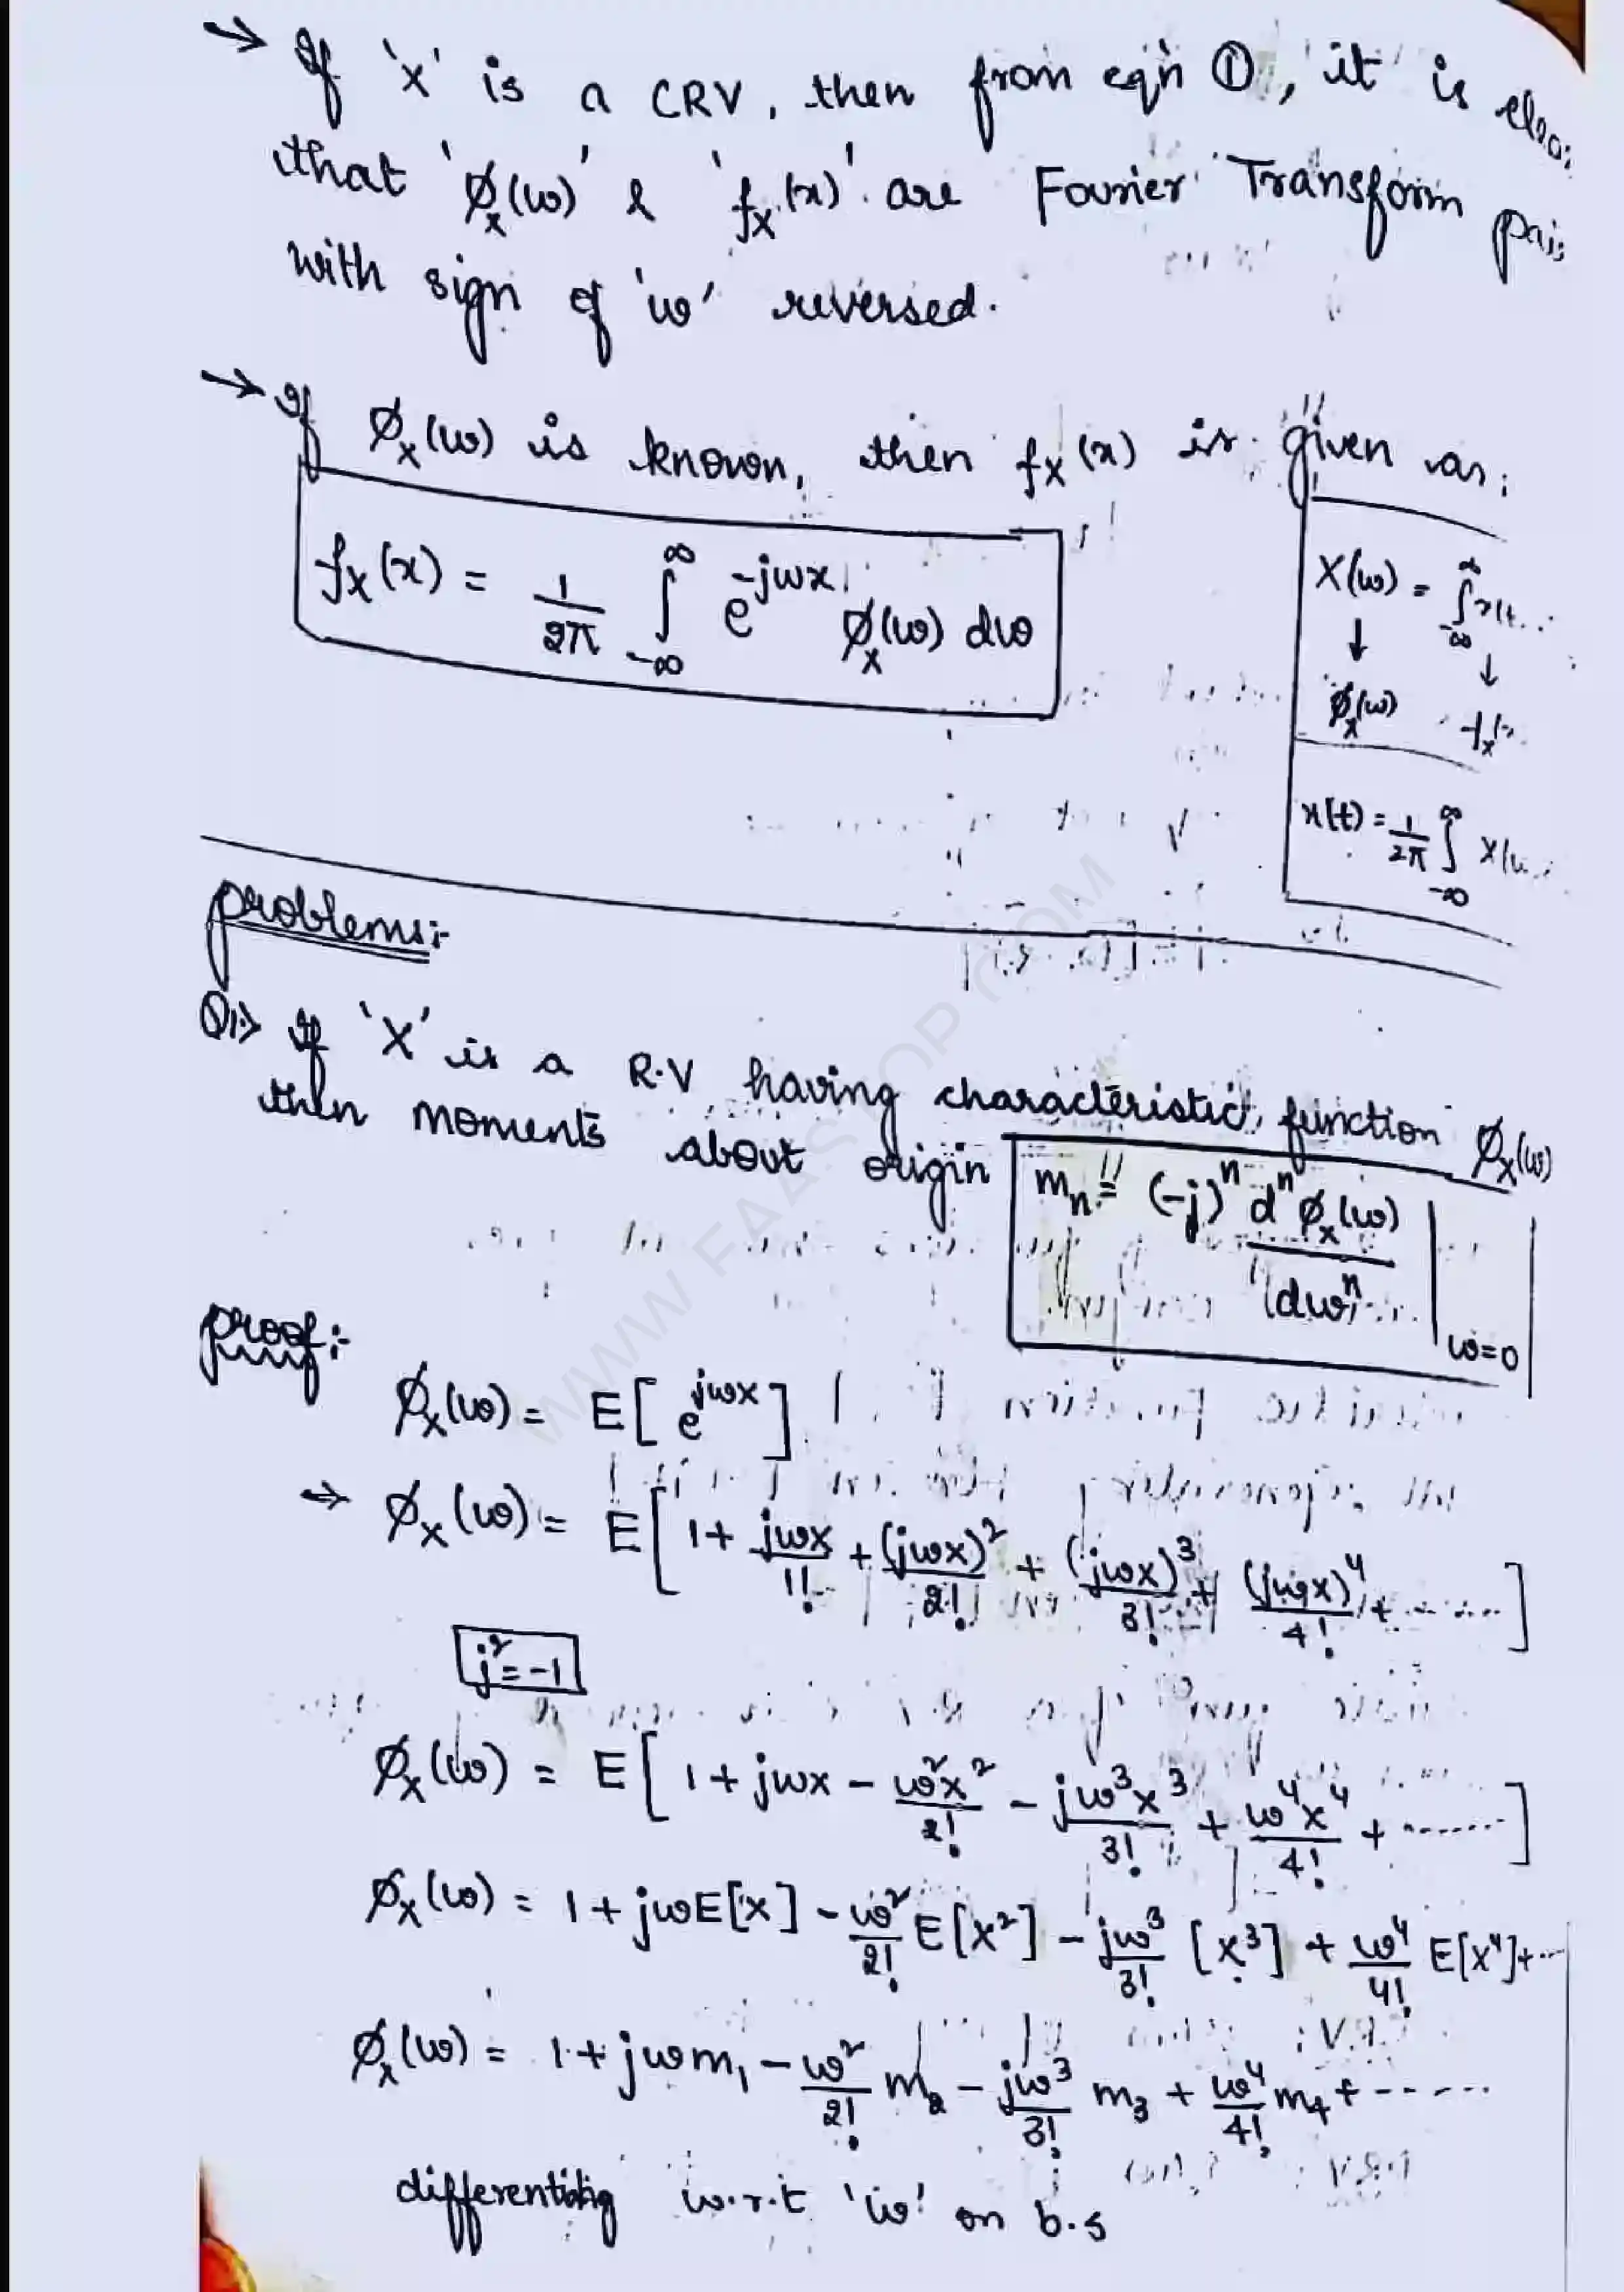 → If 'X' is a CRV, then from eqn ①, it is
that 'Ø_X(ω)' & 'f_X(x)' are Fourier Transform
with sign of 'ω' reversed.
→ If Ø_X(ω) is known, then f_X(x) is given as:
f_X(x) = 1/2π ∫_{-∞}^{∞} e^{-jωx} Ø_X(ω) dω
X(ω) = ∫_{-∞}^{∞} x(t
↓ ↓
Ø_X(ω) f_X(
x(t) = 1/2π ∫_{-∞}^{∞} X(
problems:-
Q1:> If 'X' is a R.V having characteristic function Ø_X(ω)
then moments about origin m_n = (-j)^n d^n Ø_X(ω) / dω^n |_{ω=0}
proof:-
Ø_X(ω) = E[e^{jωX}]
→ Ø_X(ω) = E[1 + jωX/1! + (jωX)^2/2! + (jωX)^3/3! + (jωX)^4/4! + ......]
j^2 = -1
Ø_X(ω) = E[1 + jωX - ω^2X^2/2! - jω^3X^3/3! + ω^4X^4/4! + ......]
Ø_X(ω) = 1 + jωE[X] - ω^2/2! E[X^2] - jω^3/3! [X^3] + ω^4/4! E[X^4] + ...
Ø_X(ω) = 1 + jωm_1 - ω^2/2! m_2 - jω^3/3! m_3 + ω^4/4! m_4 + ......
differentiating w.r.t 'ω' on b.s